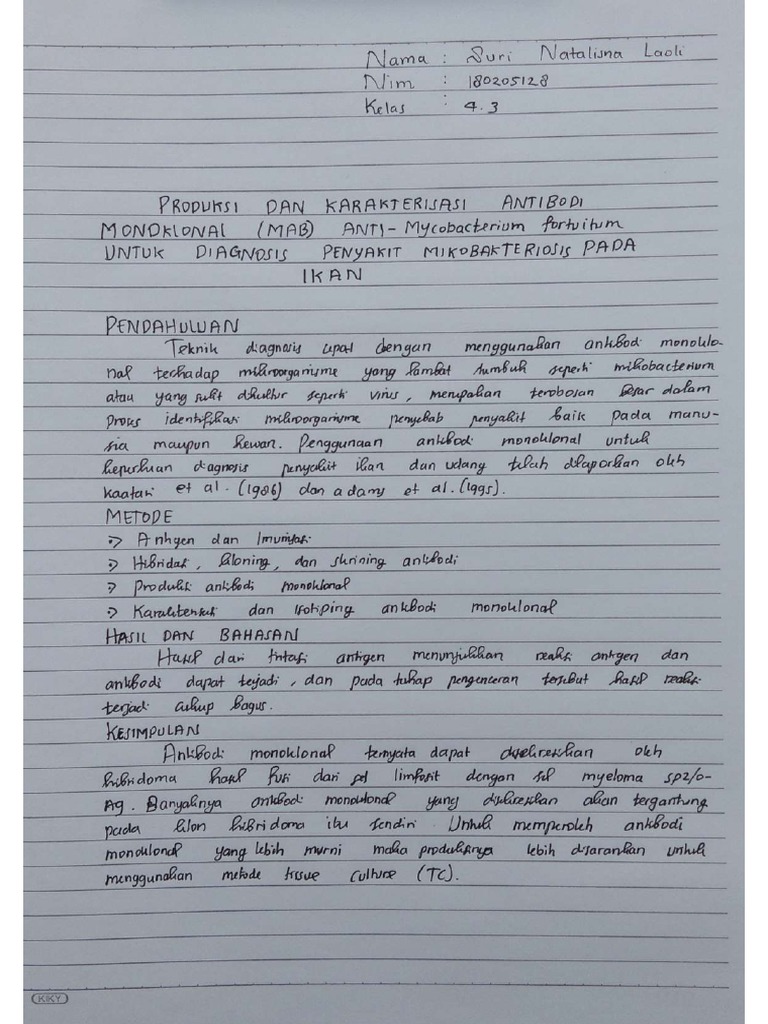 Nama : Suri Natalisna Laoli
Nim : 180205128
Kelas : 4.3
PRODUKSI DAN KARAKTERISASI ANTIBODI
MONOKLONAL (MAB) ANTI-Mycobacterium fortuitum
UNTUK DIAGNOSIS PENYAKIT MIKOBAKTERIOSIS PADA
IKAN
PENDAHULUAN
Teknik diagnosis cepat dengan menggunakan antibodi monoklo-
nal terhadap mikroorganisme yang lambat tumbuh seperti mikobacterium
atau yang sulit dikultur seperti virus, merupakan terobosan besar dalam
proses identifikasi mikroorganisme penyebab penyakit baik pada manu-
sia maupun hewan. Penggunaan antibodi monoklonal untuk
keperluan diagnosis penyakit ikan dan udang telah dilaporkan oleh
Kaatari et al. (1986) dan adams et al. (1995).
METODE
=> Antigen dan Imunisasi
=> Hibridasi, kloning, dan skrining antibodi
=> Produksi antibodi monoklonal
=> Karakterisasi dan isotiping antibodi monoklonal
HASIL DAN BAHASAN
Hasil dari titrasi antigen menunjukkan reaksi antigen dan
antibodi dapat terjadi, dan pada tahap pengenceran tersebut hasil reaksi
terjadi cukup bagus.
KESIMPULAN
Antibodi monoklonal ternyata dapat disekresikan oleh
hibridoma hasil fusi dari sel limfosit dengan sel myeloma sp2/0-
Ag. Banyaknya antibodi monoklonal yang disekresikan akan tergantung
pada klon hibridoma itu sendiri. Untuk memperoleh antibodi
monoklonal yang lebih murni maka produksinya lebih disarankan untuk
menggunakan metode tissue culture (TC).
KIKY